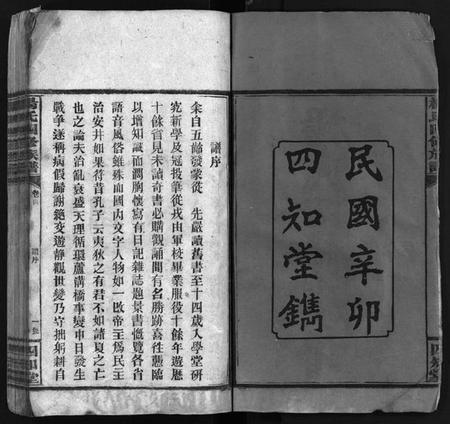 民國辛卯
四知堂鐫
楊氏四修族譜
四知堂
譜序
余自五齡發蒙從 先嚴讀舊書至十四歲入學堂研
究新學及冠投筆從戎由軍校畢業服役十餘年遊歷
十餘省見未讀奇書必購觀誦間有名勝跡喜往憑臨
以增知識而濶胸懷寫有日記雜誌題景書慨覽各省
語音風俗雖殊而國內文字人物如一敀帝王為民主
治安井如果符昔孔子云夷狄之有君不如諸夏之亡
也之論夫治亂衰盛天理循環蘆溝橋事變中日發生
戰爭遂稱病假歸謝絕交遊靜觀世變乃守拙躬耕自
楊氏四修族譜
卷首
譜序
四知堂